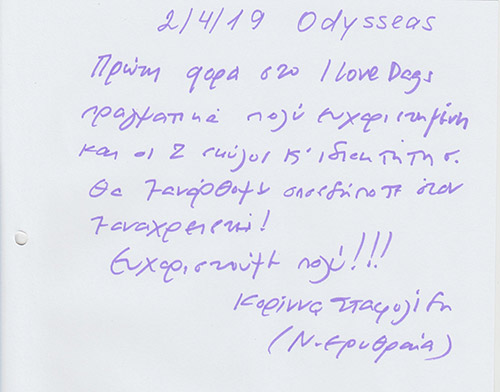 2/4/19 Odysseas
Πρώτη φορά στο I love Dogs
πραγματικά πολύ ευχαριστημένη
και οι 2 σκύλοι κ' ιδιοκτήτης.
Θα ξανάρθουμε οποτεδήποτε όταν
ξαναχρειαστεί!
Ευχαριστούμε πολύ!!!
Κορίννα
(Ν. Ερυθραία)